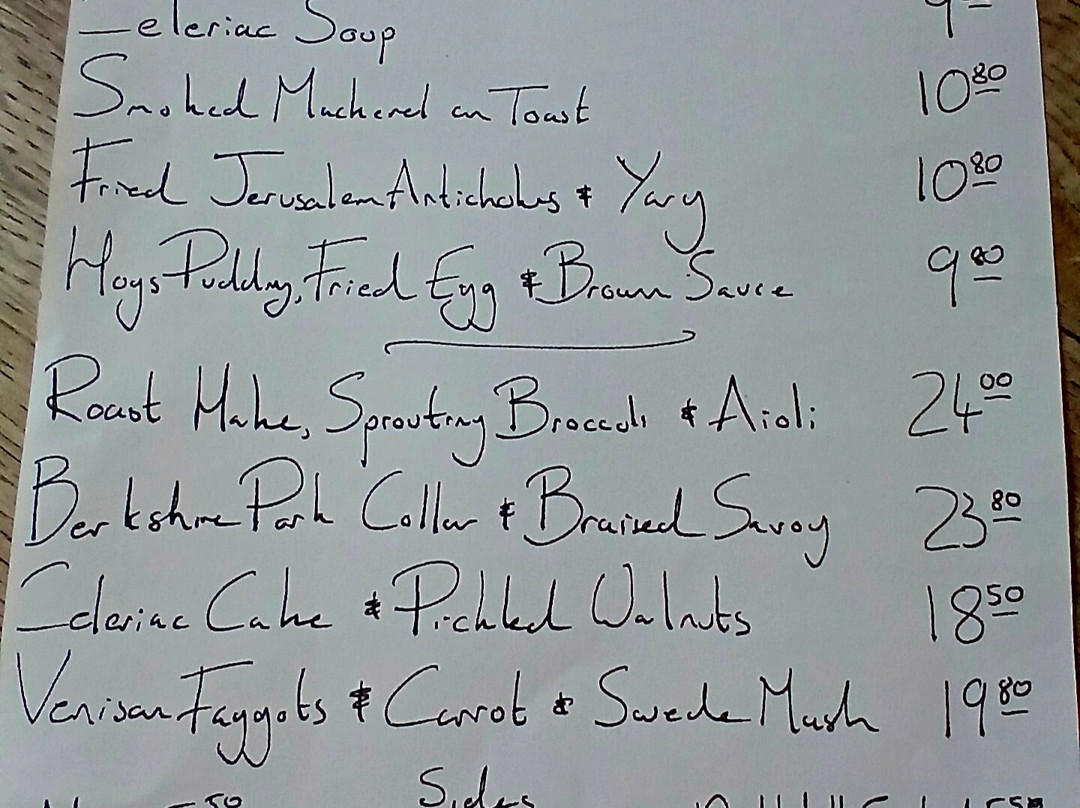 Celeriac Soup 9
Smoked Mackerel on Toast 10 80
Fried Jerusalem Artichokes & Yarg 10 80
Hogs Pudding, Fried Egg & Brown Sauce 9 80
Roast Hake, Sprouting Broccoli & Aioli 24 00
Berkshire Pork Collar & Braised Savoy 23 80
Celeriac Cake & Pickled Walnuts 18 50
Venison Faggots & Carrot & Swede Mash 19 80
Sides
50